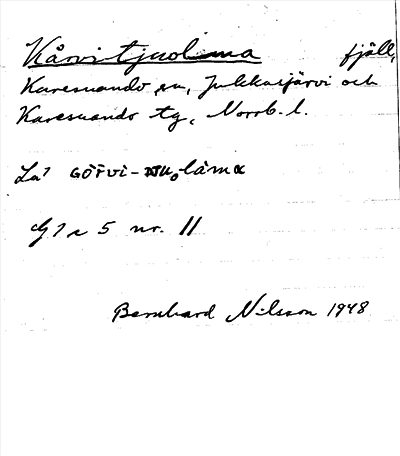 Kårvitjuolma fjäll,
Karesuando sn, Jukkasjärvi och
Karesuando tg, Norrb. l.
La?
G 1 a 5 nr. 11
Bernhard Nilsson 1948